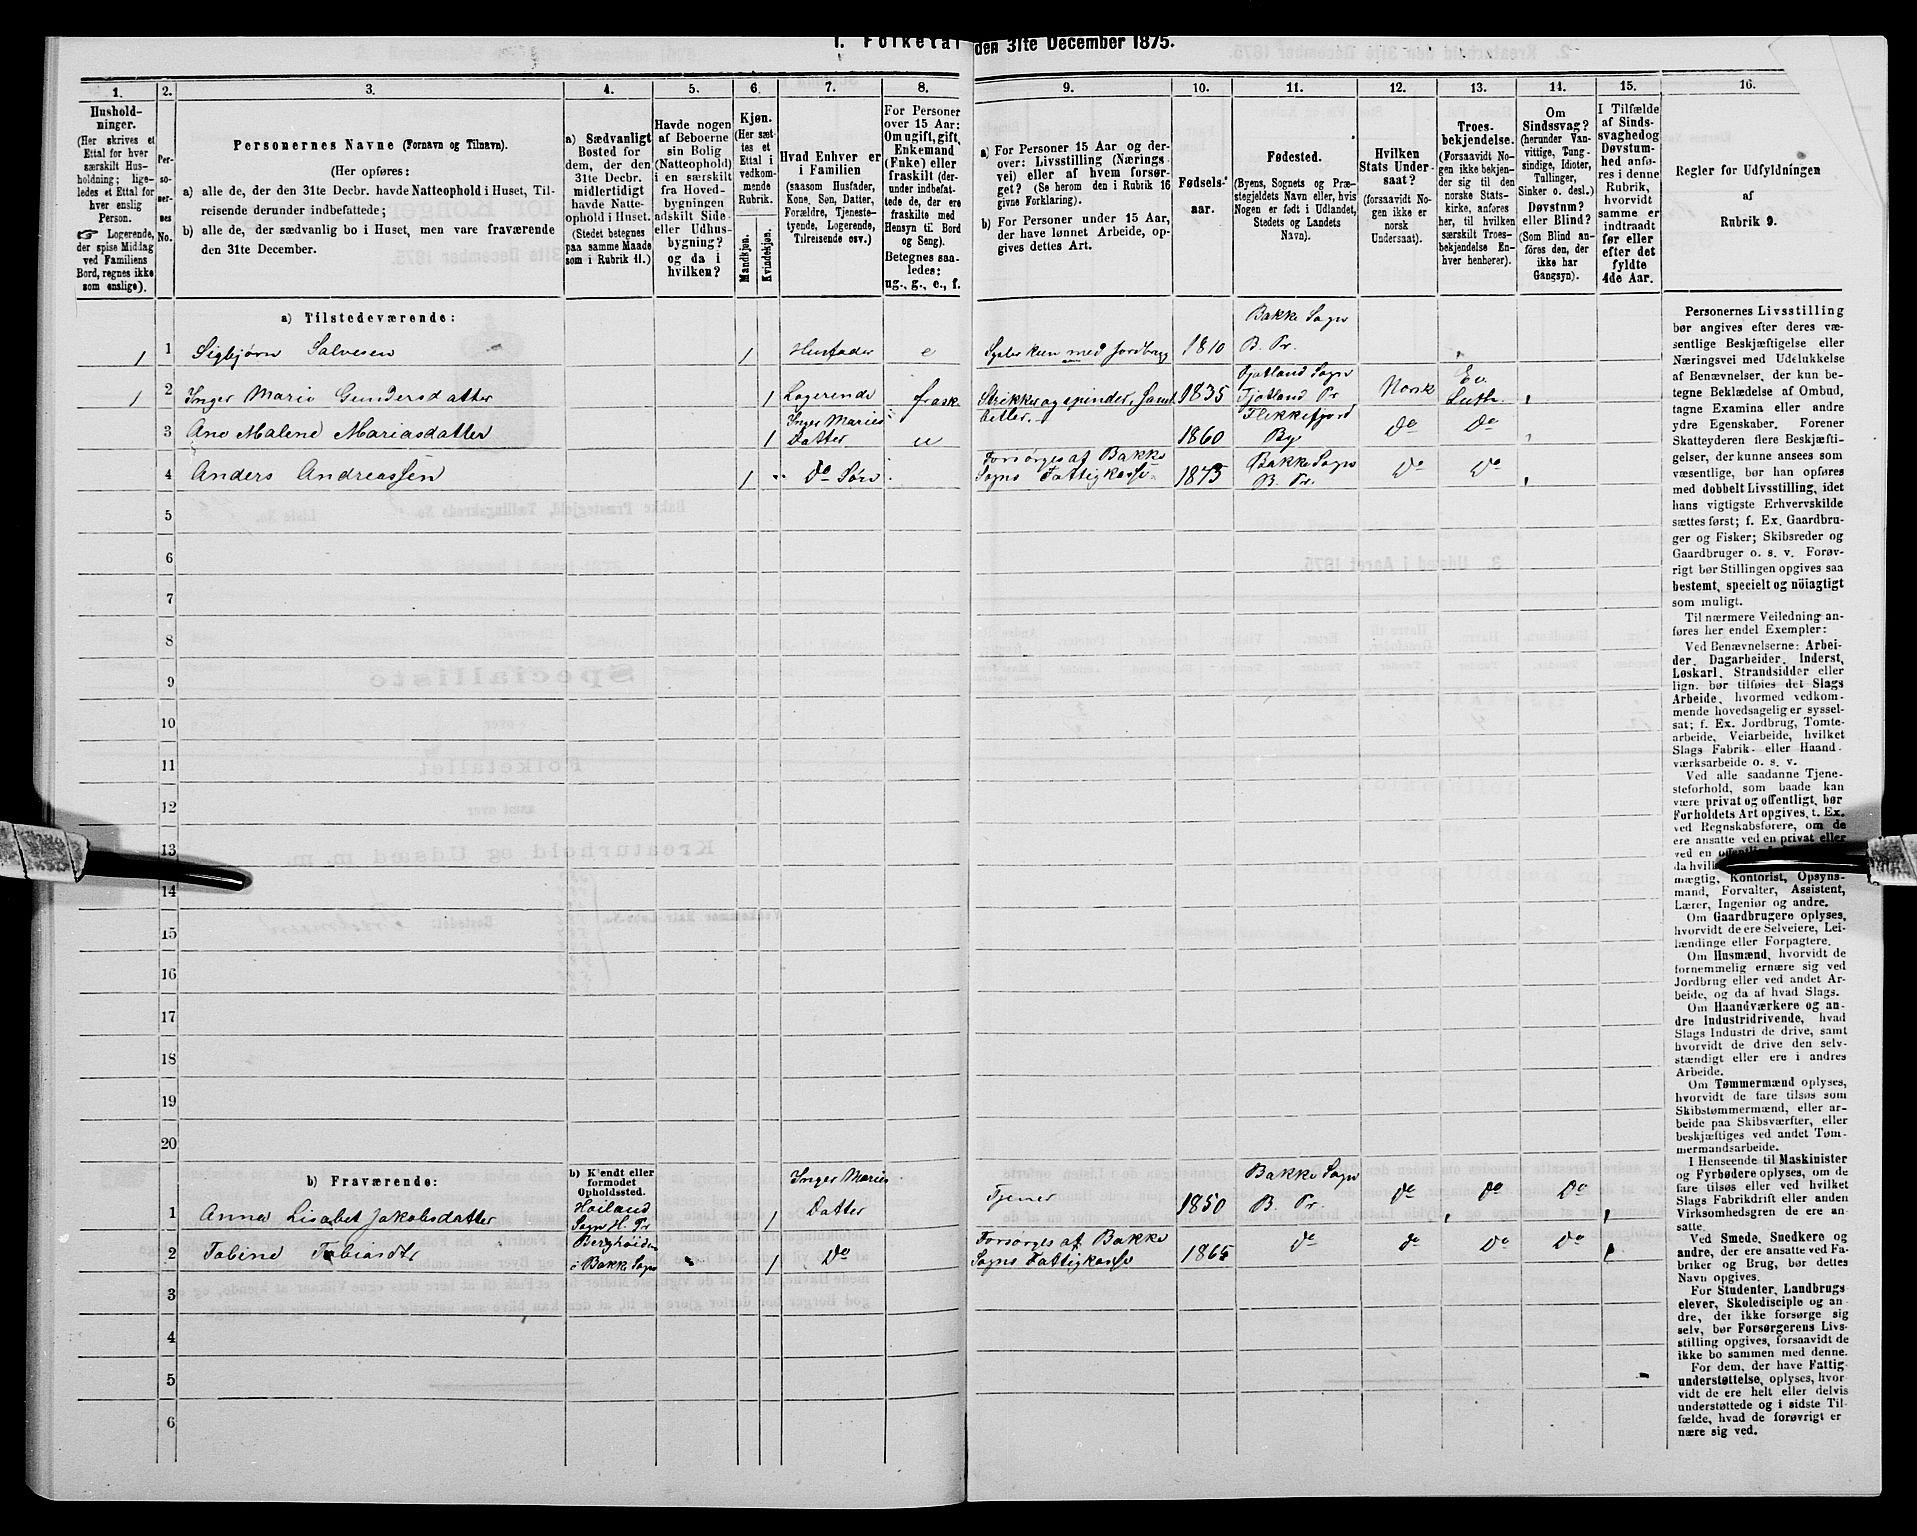 1. Folketal den 31te December 1875.
1.
2.
3.
4.
5.
6.
7.
8.
9.
10.
11.
12.
13.
14.
15.
16.
Hushold-
ninger.
(Her skrives et
Ettal for hver
særskilt Hus
holdning; lige-
ledes et Ettal for
hver enslig
Person.
☞ Logerende,
der spise Middag
ved Familiens
Bord, regnes ikke
som enslige).
Per-
so-
ner-
nes
No.
Personernes Navne (Fornavn og Tilnavn).
(Her opføres:
a) alle de, der den 31te Decbr. havde Natteophold i Huset, Til-
reisende derunder indbefattede;
b) alle de, der sædvanlig bo i Huset, men vare fraværende
den 31te December.
a) Sædvanligt
Bosted for
dem, der den
31te Decbr.
midlertidigt
havde Natte-
ophold i Huset.
(Stedet betegnes
paa samme Maade
som i Rubrik 11.)
Havde nogen
af Beboerne
sin Bolig
(Natteophold)
i en særskilt
fra Hoved-
bygningen
adskilt Side-
eller Udhus-
bygning?
og da i
hvilken?
Kjøn.
(Her sæt-
tes et
Ettal i
vedkom-
mende
Rubrik.
Mandkjøn.
Kvindekjøn.
Hvad Enhver er
i Familien
(saasom Husfader,
Kone, Søn, Datter,
Forældre, Tjeneste-
tyende, Logerende,
Tilreisende osv.)
For Personer
over 15 Aar:
Om ugift, gift,
Enkemand
(Enke) eller
fraskilt (der-
under indbefat-
tede de, der ere
fraskilte med
Hensyn til Bord
og Seng).
Betegnes saa-
ledes:
ug., g., e., f.
a) For Personer 15 Aar og der-
over: Livsstilling (Nærings
vei) eller af hvem forsør-
get? (Se herom den i Rubrik 16
givne Forklaring).
b) For Personer under 15 Aar,
der have lønnet Arbeide, op-
gives dettes Art.
Fødsels-
aar.
Fødested.
(Byens, Sognets og Præ-
stegjeldets Navn eller, hvis
Nogen er født i Udlandet,
Stedets og Landets
Navn).
Hvilken
Stats Under-
saat?
(forsaavidt No-
gen ikke er
norsk
Undersaat).
Troes-
bekjendelse.
(Forsaavidt No-
gen ikke bekjen-
der sig til den
norske Stats-
kirke, anføres
her, til hvilken
særskilt Troes-
bekjendelse En-
hver henhører).
Om
Sindssvag?
(herunder Van-
vittige, Tung-
sindige, Idioter,
Tullinger,
Sinker o. desl.)
Døvstum?
eller Blind?
(Som Blind an-
føres den, der
ikke har
Gangsyn).
I Tilfælde
af Sinds-
svaghedog
Døvstum-
hed anfø-
res i denne
Rubrik,
hvorvidt
samme er
indtraadt
før eller
efter det
fyldte
4de Aar.
Regler for Udfyldningen
af
Rubrik 9.
a) Tilstedeværende:
1 1 Sigbjørn Salvesen 1 Husfader e med Jordbrug 1810 Bakke Sogn
B. Pr.
1 2 Inger Marie Gundersdatter 1 Logerende frask Strikker og spinder, samt 1835 Fjotland Sogn
betler. Fjotland Pr. Norsk Ev. Luth.
3 Ane Malene Mariasdatter 1 Inger Maries
Datter u 1860 Flekkefjord
By Do Do
4 Anders Andreassen 1 Do Søn Forsørges af Bakke
Sogns Fattigkasse 1875 Bakke Sogn
B. Pr. Do Do
5
6
7
8
9
10
11
12
13
14
15
16
17
18
19
20
b) Fraværende:
b) Kjendt eller
formodet
Opholdssted.
1 Anna Lisabet Jakobsdatter Höiland
Sogn H. Pr 1 Inger Maries
Datter Tjener 1850 Bakke Sogn
B. Pr. Do Do Do
2 Tobine Tobiasdtr i Bakke Sogn 1 Do Forsørges af Bakke
Sogns Fattigkasse 1865 Do Do Do Do
3
4
5
6
Personernes Livsstilling
bør angives efter deres væ-
sentlige Beskjæftigelse eller
Næringsvei med Udelukkelse
af Benævnelser, der kun be-
tegne Beklædelse af Ombud,
tagne Examina eller andre
ydre Egenskaber. Forener
Skatteyderen flere Beskjæfti-
gelser, der kunne ansees som
væsentlige, bør han opføres
med dobbelt Livsstilling, idet
hans vigtigste Erhvervskilde
sættes først; f. Ex. Gaardbru-
ger og Fisker; Skibsreder og
Gaardbruger o. s. v. Forøv-
rigt bør Stillingen opgives saa
bestemt, specielt og nöiagtigt
som muligt.
Til nærmere Veiledning an-
føres her endel Exempler:
Ved Benævnelserne: Arbei-
der, Dagarbeider, Inderst,
Løskarl, Strandsidder eller
lign. bør tilføies det Slags
Arbeide, hvormed vedkom-
mende hovedsagelig er syssel-
sat; f. Ex. Jordbrug, Tomte-
arbeide, Veiarbeide, hvilket
Slags Fabrik- eller Haand-
værksarbeide o. s. v.
Ved alle saadanne Tjene-
steforhold, som baade kan
være privat og offentligt, bør
Forholdets Art opgives, t. Ex.
ved Regnskabsførere, om de
ere ansatte ved en privat eller
ved en
da hvil
mægtig, Kontorist, Opsyns-
mand, Forvalter, Assistent,
Lærer, Ingeniør og andre.
Om Gaardbrugere oplyses,
hvorvidt de ere Selveiere, Lei-
lændinge eller Forpagtere.
Om Husmænd, hvorvidt de
fornemmelig ernære sig ved
Jordbrug eller ved andet Ar-
beide, og da af hvad Slags.
Om Haandværkere og an-
dre Industridrivende, hvad
Slags Industri de drive, samt
hvorvidt de drive den selv-
stændigt eller ere i andres
Arbeide.
Om Tømmermænd oplyses,
hvorvidt de fare tilsøs som
Skibstømmermænd, eller ar-
beide paa Skibsværfter, eller
beskjæftiges ved andet Tøm-
mermandsarbeide.
I Henseende til Maskinister
og Fyrbødere oplyses, om de
fare tilsøs eller ved hvilket
Slags Fabrikdrift eller anden
Virksomhedsgren de ere an-
satte.
Ved Smede, Snedkere og
andre, der ere ansatte ved Fa-
briker og Brug, bør dettes
Navn opgives.
For Studenter, Landbrugs
elever, Skoledisciple og an-
dre, der ikke forsørge sig
selv, bør Forsørgerens Livs-
stilling opgives, forsaavidt de
ikke bo sammen med denne.
For dem, der have Fattig-
understøttelse, oplyses, hvor-
vidt de ere helt eller delvis
understøttede og i sidste Til-
fælde, hvad de forøvrigt er
nære sig ved.